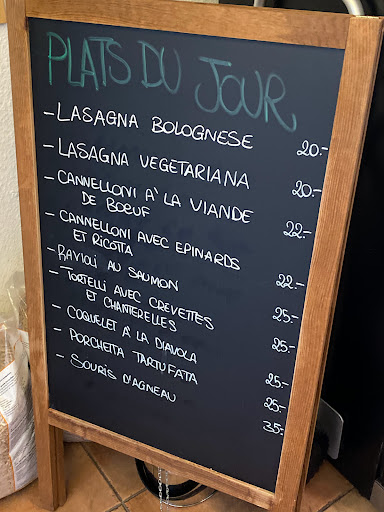 PLATS DU JOUR
- LASAGNA BOLOGNESE 20.-
- LASAGNA VEGETARIANA 20.-
- CANNELLONI A' LA VIANDE
DE BOEUF 22.-
- CANNELLONI AVEC EPINARDS
ET RICOTTA 22.-
- RAVIOLI AU SAUMON 25.-
- TORTELLI AVEC CREVETTES
ET CHANTERELLES 25.-
- COQUELET A' LA DIAVOLA 25.-
- PORCHETTA TARTUFATA 25.-
- SOURIS D'AGNEAU 35.-